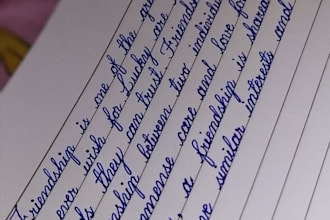 Friendship is one of the
ever wish for. Lucky are
they can trust. Friendsh
between two individu
mmense care and love f
a friendship is chara
similar interests and